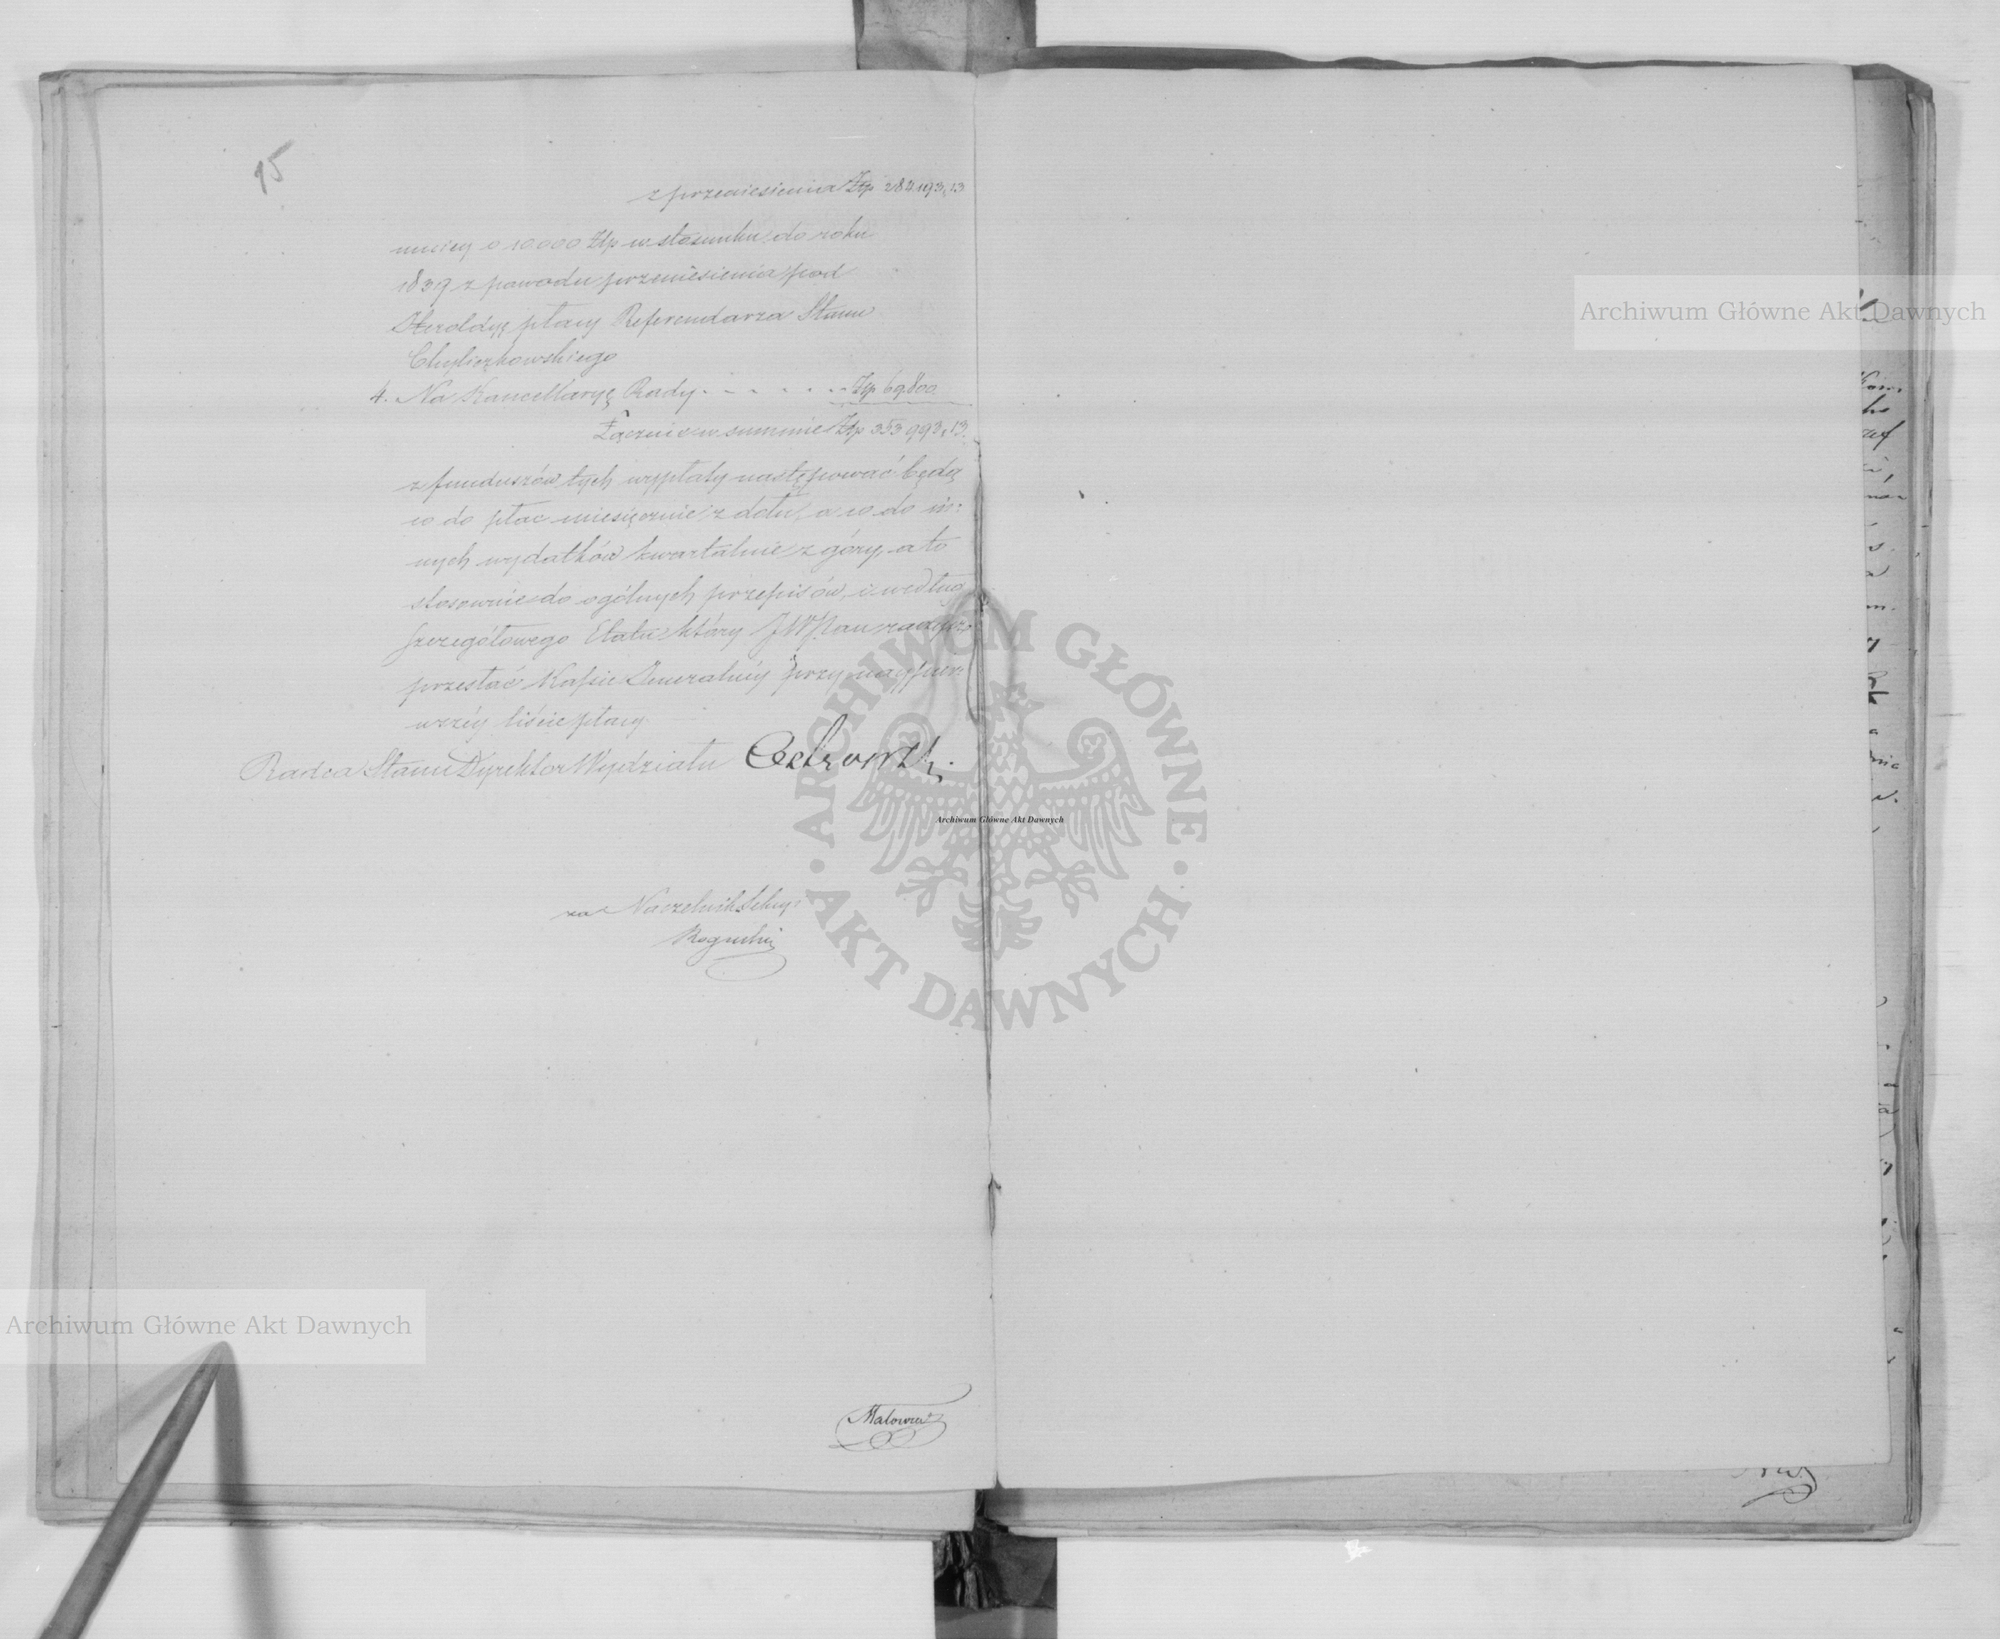 15
z przeniesienia Złp 284.193,13
mniey o 10000 Złp w stosunku do roku
1839 z powodu przeniesienia pod
Heroldyę płacy Referendarza Stanu
Chyliczkowskiego
4. Na Kancellaryę Rady . - - . . . - Złp 69,800
Łącznie w summie Złp 353 993,13
z funduszów tych wypłaty następować będą
co do płac miesięcznie z dołu, a co do in:
nych wydatków kwartalnie z góry, a to
stosownie do ogólnych przepisów, i według
szczegółowego Etatu który JWPan raczysz
przesłać Kassie Generalnéy przy naypier:
wszéy liście płacy.
Radca Stanu Dyrektor Wydziału
za Naczelnik Sekcyi
Archiwum Główne Akt Dawnych
Archiwum Główne Akt Dawnych
Archiwum Główne Akt Dawnych
ARCHIWUM GŁÓWNE
AKT DAWNYCH